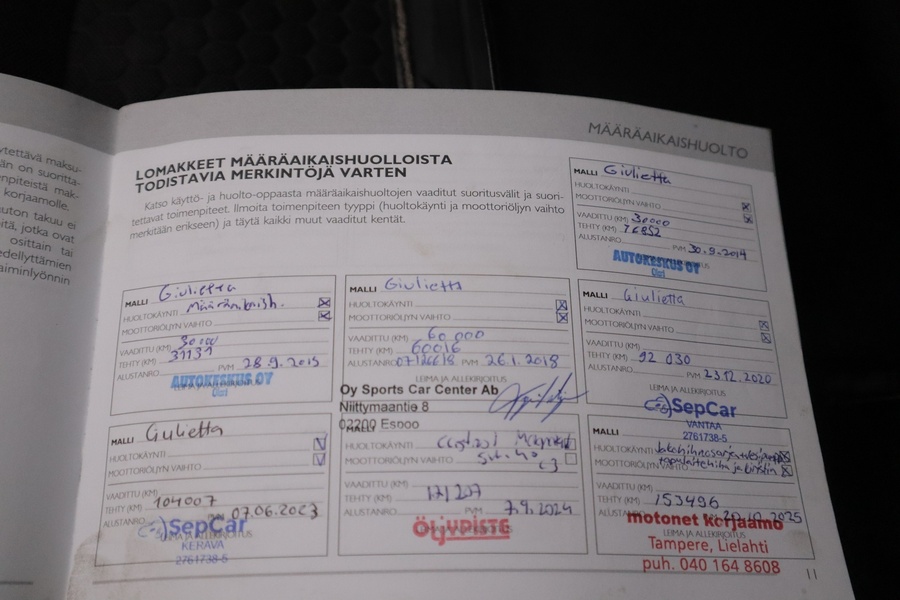 MÄÄRÄAIKAISHUOLTO
LOMAKKEET MÄÄRÄAIKAISHUOLLOISTA
TODISTAVIA MERKINTÖJÄ VARTEN
Katso käyttö- ja huolto-oppaasta määräaikaishuoltojen vaaditut suoritusvälit ja suori-
tettavat toimenpiteet. Ilmoita toimenpiteen tyyppi (huoltokäynti ja moottoriöljyn vaihto
merkitään erikseen) ja täytä kaikki muut vaaditut kentät.
ytettävä maksu-
än on suoritta-
npiteistä mak-
korjaamolle.
uton takuu ei
eitä, jotka ovat
osittain tai
edellyttämien
aiminlyönnin
MALLI Giulietta
HUOLTOKÄYNTI
MOOTTORIÖLJYN VAIHTO
VAADITTU (KM) 30000
TEHTY (KM) 16852
ALUSTANRO PVM 30.9.2014
AUTOKESKUS OY
MALLI Giulietta
HUOLTOKÄYNTI
MOOTTORIÖLJYN VAIHTO
VAADITTU (KM) 30000
TEHTY (KM) 31131
ALUSTANRO PVM 28.9.2015
AUTOKESKUS OY
MALLI Giulietta
HUOLTOKÄYNTI
MOOTTORIÖLJYN VAIHTO
VAADITTU (KM) 60 000
TEHTY (KM) 60016
ALUSTANRO 07126618 PVM 26.1.2018
LEIMA JA ALLEKIRJOITUS
Oy Sports Car Center Ab
Niittymaantie 8
02200 Espoo
MALLI Giulietta
HUOLTOKÄYNTI
MOOTTORIÖLJYN VAIHTO
VAADITTU (KM)
TEHTY (KM) 92 030
ALUSTANRO PVM 23.12.2020
LEIMA JA ALLEKIRJOITUS
SepCar
VANTAA
2761738-5
MALLI Giulietta
HUOLTOKÄYNTI
MOOTTORIÖLJYN VAIHTO
VAADITTU (KM)
TEHTY (KM) 104007
ALUSTANRO PVM 07.06.2023
LEIMA JA ALLEKIRJOITUS
SepCar
KERAVA
2761738-5
MALLI
HUOLTOKÄYNTI
MOOTTORIÖLJYN VAIHTO
VAADITTU (KM)
TEHTY (KM) 121207
ALUSTANRO 7.9.2024
ÖLJYPISTE
MALLI
HUOLTOKÄYNTI
MOOTTORIÖLJYN VAIHTO
VAADITTU (KM)
TEHTY (KM) 153496
ALUSTANRO 20.10.2025
motonet korjaamo
LEIMA JA ALLEKIRJOITUS
Tampere, Lielahti
puh. 040 164 8608
11